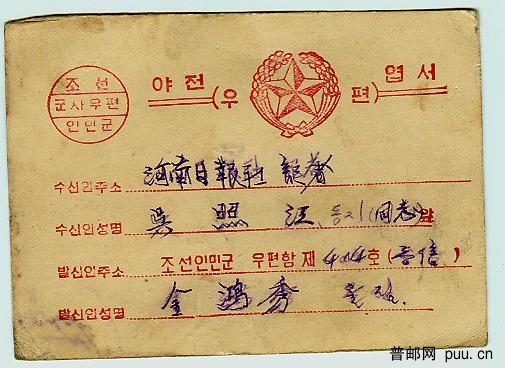 조선
군사우편
인민군
야전(우편)엽서
수신인주소 河南日報社 記者
수신인성명 吳照江 동지(同志)앞
발신인주소 조선인민군 우편함 제 404호 (통信)
발신인성명 金鴻秀 올림
普邮网 puu.cn